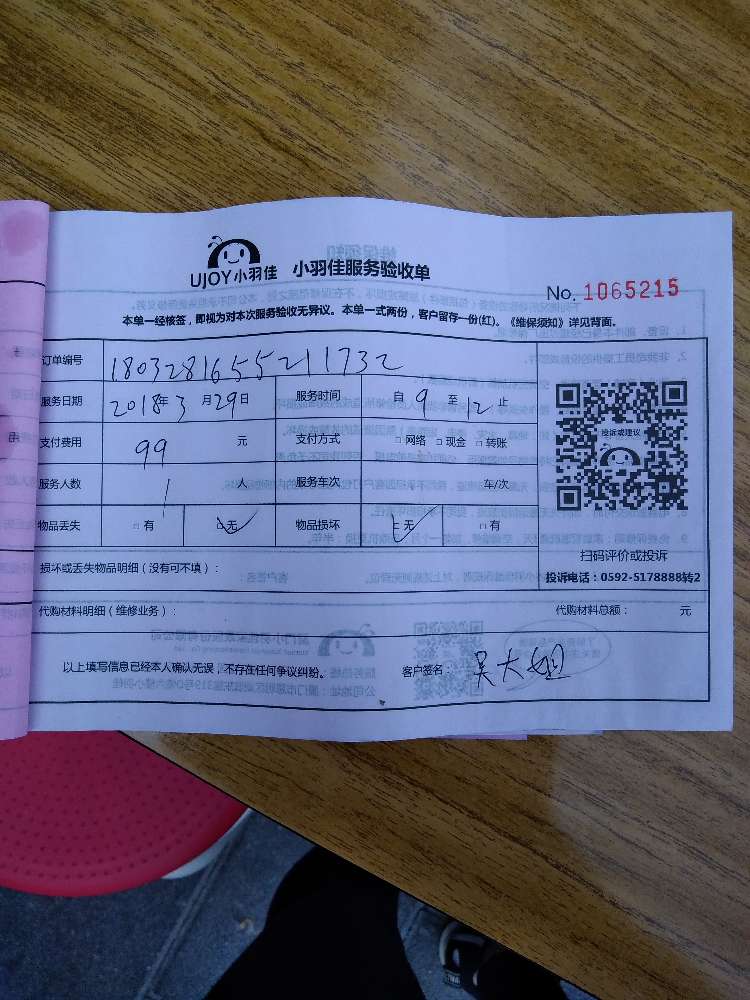 UJOY小羽佳 小羽佳服务验收单
No. 1065215
本单一经核签，即视为对本次服务验收无异议。本单一式两份，客户留存一份(红)。《维保须知》详见背面。
订单编号 1803281655211732
服务日期 2018年3月29日 服务时间 自9至12止
支付费用 99 元 支付方式 □网络 □现金 □转账
服务人数 1 人 服务车次 车/次
物品丢失 □有 □无 物品损坏 □无 □有
投诉或建议
扫码评价或投诉
投诉电话：0592-5178888转2
损坏或丢失物品明细（没有可不填）：
代购材料明细（维修业务）： 代购材料总额： 元
以上填写信息已经本人确认无误，不存在任何争议纠纷。 客户签名： 吴大姐